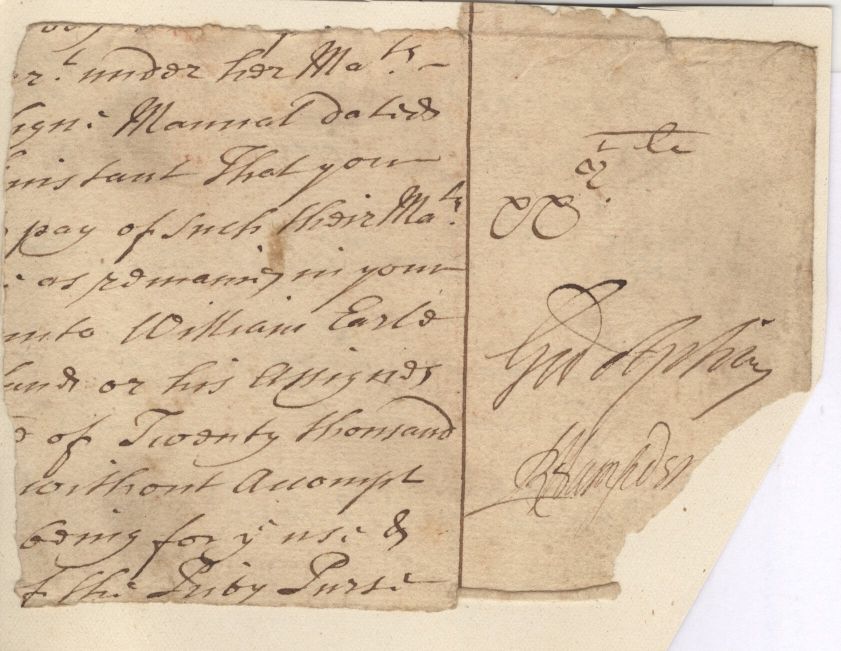 r.t under her Ma.ts
signe Manual dated
instant That you
pay of such their Ma.ts
as remaines in your
unto William Earle
land or his Assignes
of Twenty thousand
without Accompt
being for ye use &
of the Privy Purse
Godolphin
RHampden